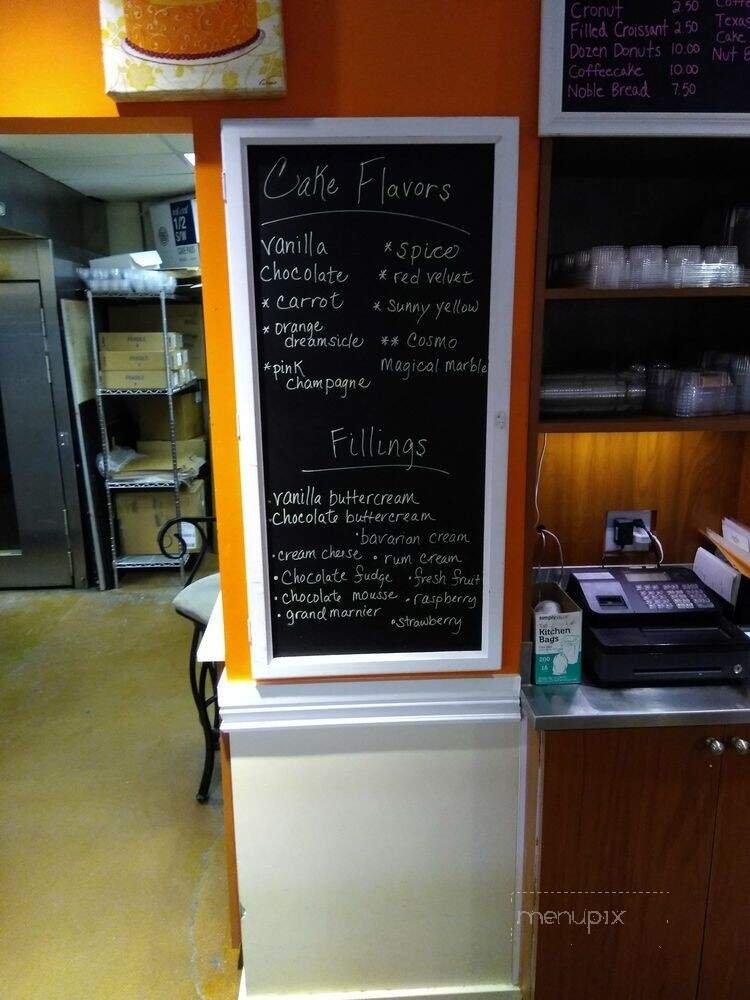 Cronut 2.50
Filled Croissant 2.50
Dozen Donuts 10.00
Coffeecake 10.00
Noble Bread 7.50
Texas
Cake
Nut
Cake Flavors
vanilla
Chocolate
* carrot
* orange
dreamsicle
* pink
champagne
* spice
* red velvet
* sunny yellow
** Cosmo
Magical marble
Fillings
vanilla buttercream
Chocolate buttercream
• bavarian cream
• cream cheese • rum cream
• Chocolate fudge • fresh fruit
• chocolate mousse • raspberry
• grand marnier
• strawberry
1/2
Tall
Kitchen
Bags
200
menupix